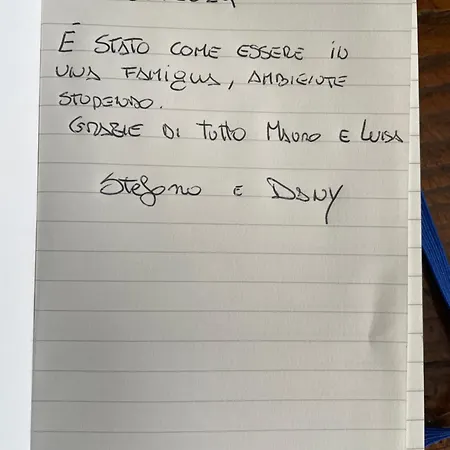 È STATO COME ESSERE IN
UNA FAMIGLIA, AMBIENTE
STUPENDO.
GRAZIE DI TUTTO MAURO E LUISA
Stefano E DANY